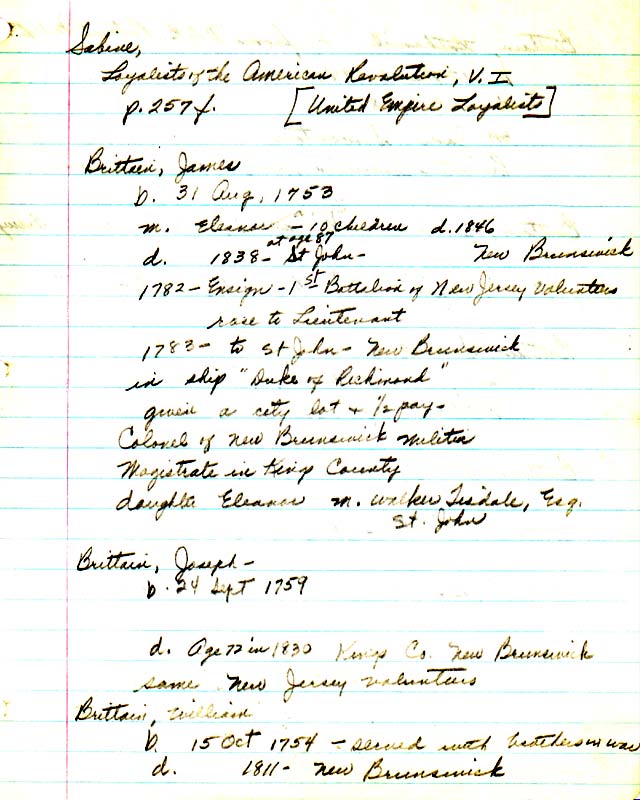 Sabine,
Loyalists of the American Revolution, V. I
p. 257 f. [United Empire Loyalists]
Brittain, James
b. 31 Aug, 1753
m. Eleanor - 10 children d. 1846
at age 87
d. 1838 - St John - New Brunswick
1782 - Ensign - 1st Battalion of New Jersey Volunteers
rose to Lieutenant
1783 - to St John - New Brunswick
in ship "Duke of Richmond"
given a city lot + 1/2 pay -
Colonel of New Brunswick Militia
Magistrate in Kings County
daughter Eleanor m. Walker Tisdale, Esq.
St. John
Brittain, Joseph -
b. 24 Sept 1759
d. Age 72 in 1830 Kings Co. New Brunswick
same New Jersey Volunteers
Brittain, William
b. 15 Oct 1754 - served with brothers in war
d. 1811 - New Brunswick